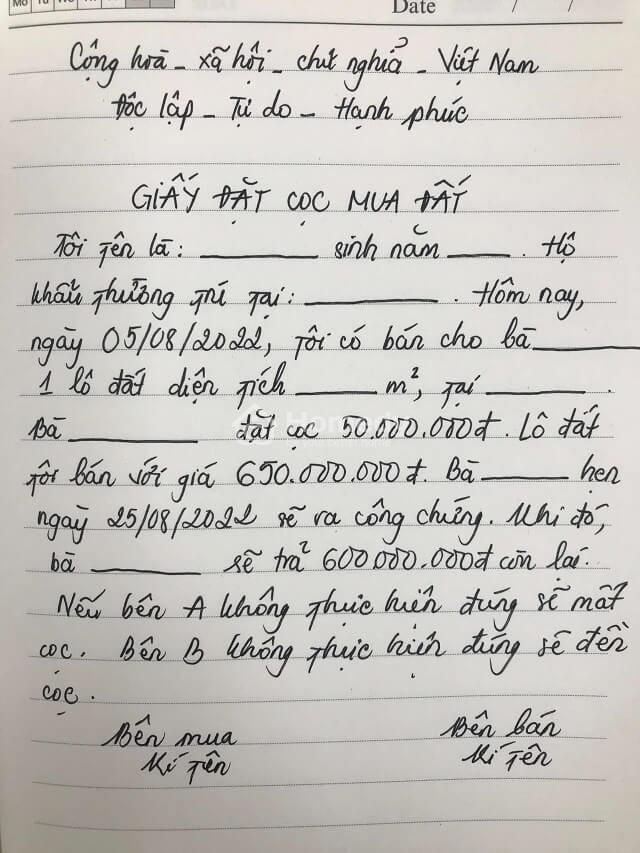 Mo Tu We Th Fr Sa Su
Date / /
Cộng hoà - xã hội - chủ nghĩã - Việt Nam
Độc lập - Tự do - Hạnh phúc
GIẤY ĐẶT CỌC MUA ĐẤT
Tôi tên là: ________ sinh năm ____. Hộ
khẩu thường trú tại: ________. Hôm nay,
ngày 05/08/2022, tôi có bán cho bà ________
1 lô đất diện tích ______ m², tại _______.
Bà ________ đặt cọc 50.000.000đ. Lô đất
tôi bán với giá 650.000.000đ. Bà ______ hẹn
ngày 25/08/2022 sẽ ra công chứng. Khi đó,
bà ________ sẽ trả 600.000.000đ còn lại.
Nếu bên A không thực hiện đúng sẽ mất
cọc. Bên B không thực hiện đúng sẽ đền
cọc.
Bên mua Bên bán
Kí tên Kí tên